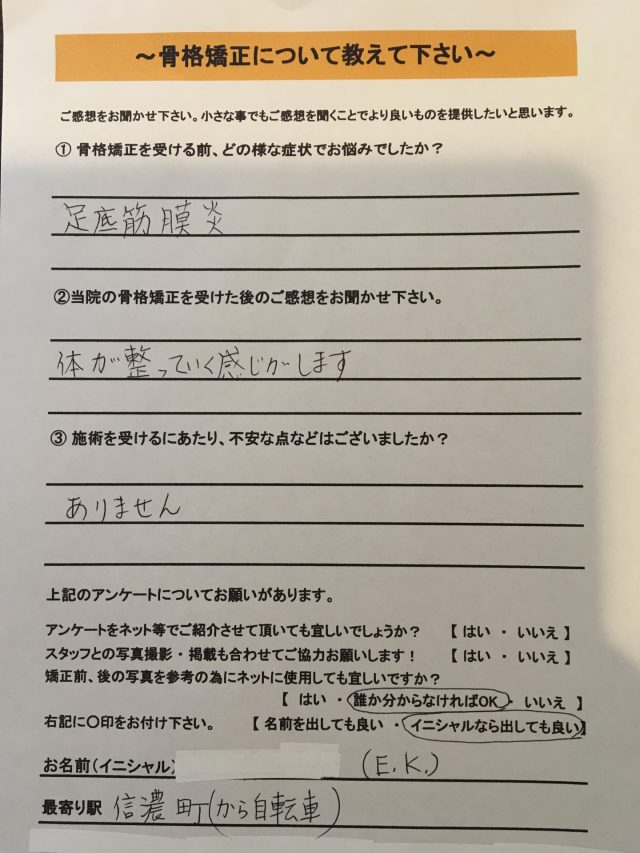 ～骨格矯正について教えて下さい～
ご感想をお聞かせ下さい。小さな事でもご感想を聞くことでより良いものを提供したいと思います。
① 骨格矯正を受ける前、どの様な症状でお悩みでしたか？
足底筋膜炎
②当院の骨格矯正を受けた後のご感想をお聞かせ下さい。
体が整っていく感じがします
③ 施術を受けるにあたり、不安な点などはございましたか？
ありません
上記のアンケートについてお願いがあります。
アンケートをネット等でご紹介させて頂いても宜しいでしょうか？ 【 はい ・ いいえ 】
スタッフとの写真撮影・掲載も合わせてご協力お願いします！ 【 はい ・ いいえ 】
矯正前、後の写真を参考の為にネットに使用しても宜しいですか？
【 はい ・ 誰か分からなければOK ・ いいえ 】
右記に〇印をお付け下さい。 【 名前を出しても良い ・ イニシャルなら出しても良い】
お名前（イニシャル） (E.K.)
最寄り駅 信濃町(から自転車)